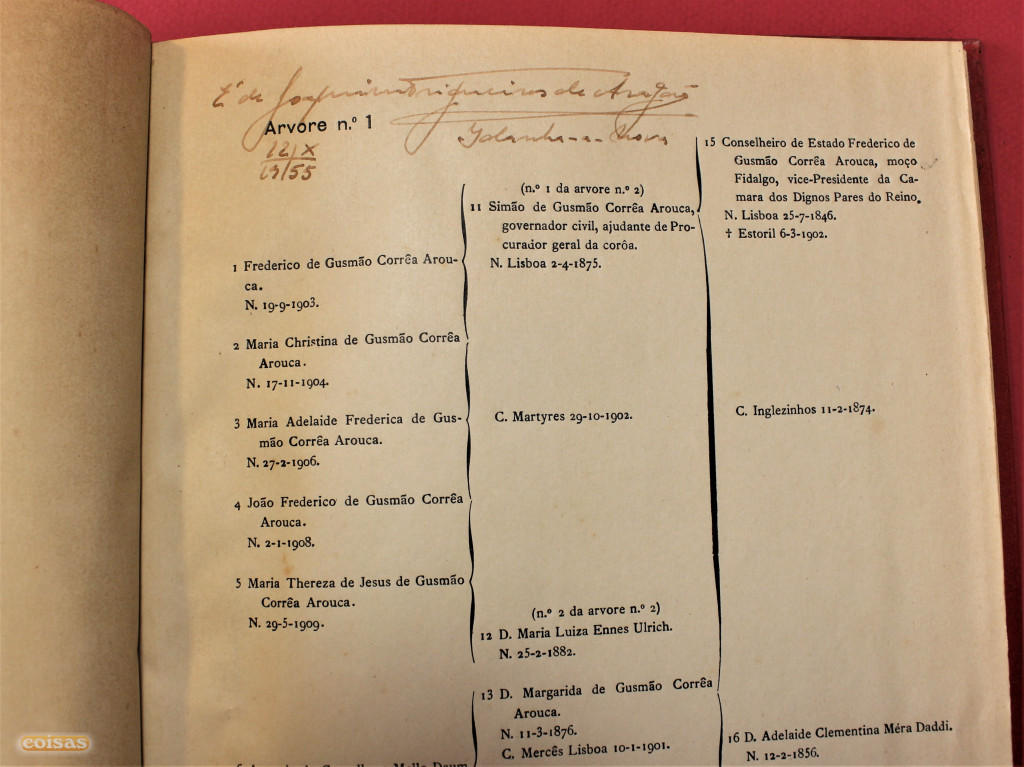 É de Joaquim Trigueiros de Aragão
Arvore n.º 1
Idanha-a-Nova
12/X
13/55
1 Frederico de Gusmão Corrêa Arou-
ca.
N. 19-9-1903.
2 Maria Christina de Gusmão Corrêa
Arouca.
N. 17-11-1904.
3 Maria Adelaide Frederica de Gus-
mão Corrêa Arouca.
N. 27-2-1906.
4 João Frederico de Gusmão Corrêa
Arouca.
N. 2-1-1908.
5 Maria Thereza de Jesus de Gusmão
Corrêa Arouca.
N. 29-5-1909.
(n.º 1 da arvore n.º 2)
11 Simão de Gusmão Corrêa Arouca,
governador civil, ajudante de Pro-
curador geral da corôa.
N. Lisboa 2-4-1875.
C. Martyres 29-10-1902.
(n.º 2 da arvore n.º 2)
12 D. Maria Luiza Ennes Ulrich.
N. 25-2-1882.
13 D. Margarida de Gusmão Corrêa
Arouca.
N. 11-3-1876.
C. Mercês Lisboa 10-1-1901.
15 Conselheiro de Estado Frederico de
Gusmão Corrêa Arouca, moço
Fidalgo, vice-Presidente da Ca-
mara dos Dignos Pares do Reino.
N. Lisboa 25-7-1846.
† Estoril 6-3-1902.
C. Inglezinhos 11-2-1874.
16 D. Adelaide Clementina Méra Daddi.
N. 12-2-1856.
coisas